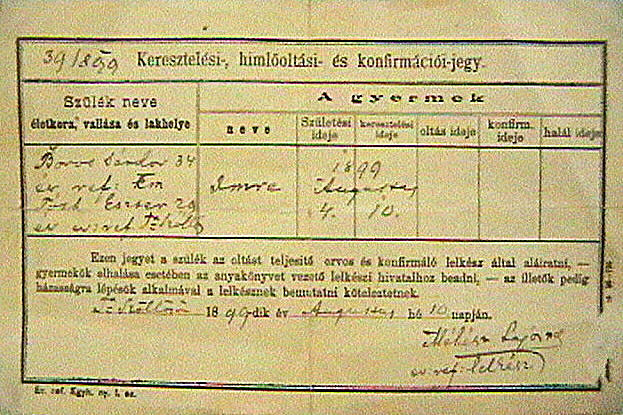 39/899 Keresztelési-, himlőoltási- és konfirmációi-jegy.
Szülék neve
életkora, vallása és lakhelye
A gyermek
neve
Születési ideje
keresztelési ideje
oltás ideje
konfirm. ideje
halál ideje
Boros Sándor 34
ev. ref.
Eszter 29
ev. ref.
Imre
1899
Augustus
4. 10.
Ezen jegyet a szülék az oltást teljesitő orvos és konfirmáló lelkész által aláiratni, —
gyermekök elhalása esetében az anyakönyvet vezető lelkészi hivatalhoz beadni, — az illetők pedig
házasságra lépésök alkalmával a lelkésznek bemutatni köteleztetnek.
1899dik év Augustus hó 10 napján.
Lajos
ev. ref. lelkész
Ev. ref. Egyh. ny. I. sz.